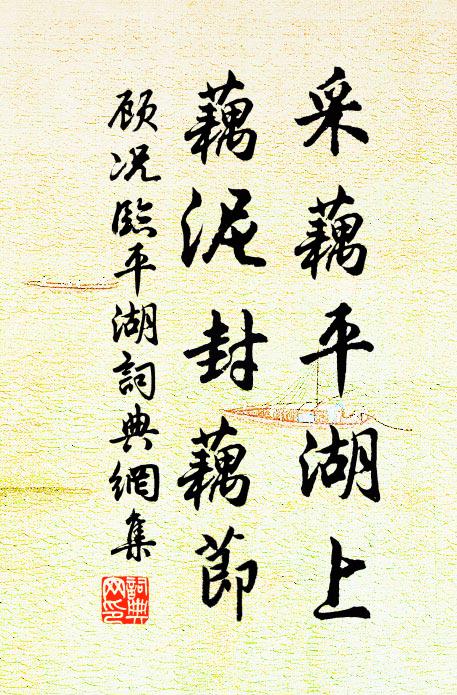 采藕平湖上
藕泥封藕節
顾况臨平湖詞典網集
詞典网印